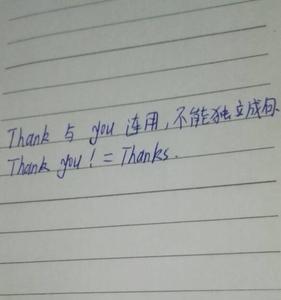 Thank 与 you 连用,不能独立成句.
Thank you! = Thanks.